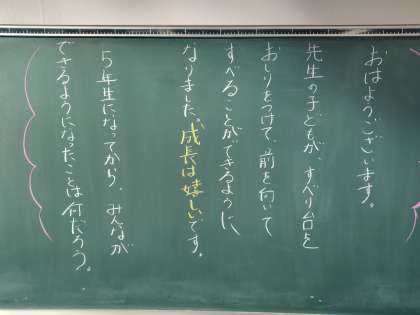 おはようございます。
先生の子どもが、すべり台を
おしりをつけて、前を向いて
すべることができるように、
なりました。成長は嬉しいです。
5年生になってから、みんなが
できるようになったことは何だろう。